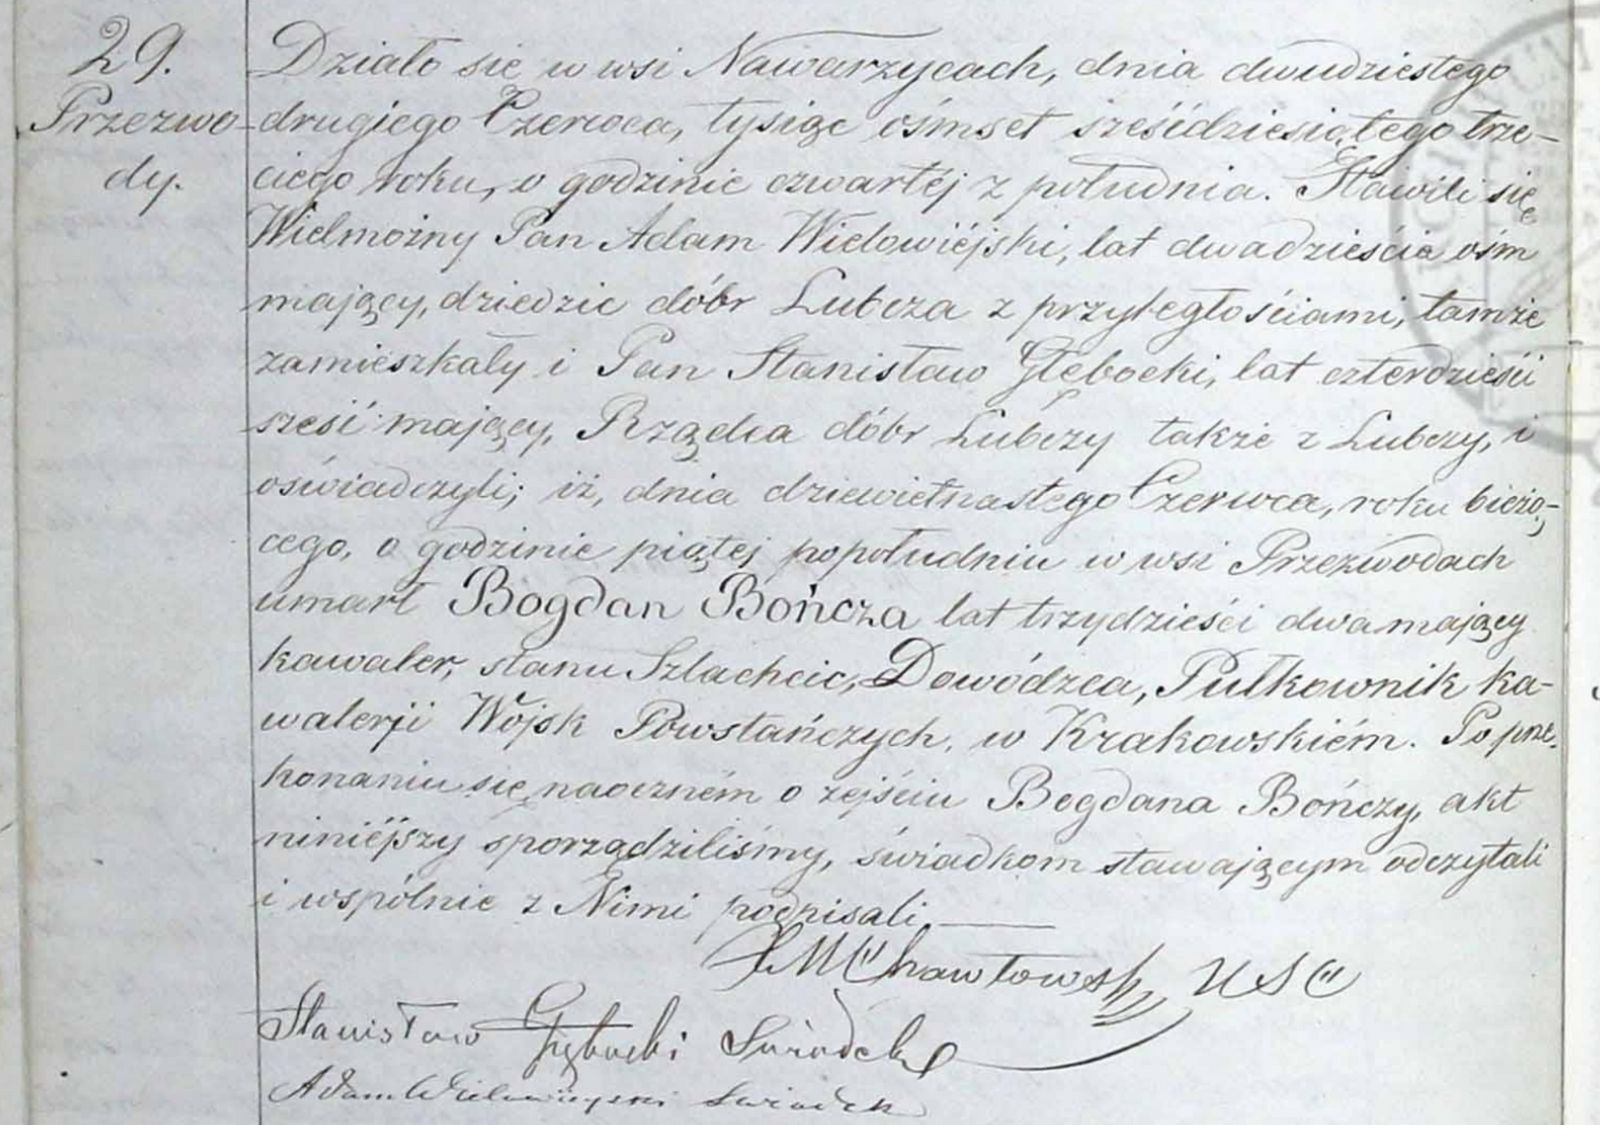 29.
Przezwo-
dy.
Działo sie w wsi Nawarzycach, dnia dwudziestego
drugiego Czerwca, tysiąc ośmset sześćdziesiątego trze-
ciego roku, o godzinie czwartéj z południa. Stawili się
Wielmożny Pan Adam Wielowiéjski, lat dwadzieścia ośm
mający, dziedzic dóbr Lubcza z przyległościami, tamże
zamieszkały i Pan Stanisław Głębocki, lat czterdzieści
sześć mający, Rządca dóbr Lubczy także z Lubczy, i
oświadczyli; iż, dnia dziewietnastego Czerwca, roku bieżą-
cego, o godzinie piątej popołudniu w wsi Przezwodach
umarł Bogdan Bończa lat trzydzieści dwa mający
kawaler, stanu Szlachcic, Dowódzca, Pułkownik ka-
walerji Wojsk Powstańczych, w Krakowskiém. Po prze-
konaniu się naoczném o zejściu Bogdana Bończy, akt
niniéjszy sporządziliśmy, świadkom stawającym odczytali
i wspólnie z Nimi podpisali
Chawłowski U S C
Stanisław Głębocki Swiadek
Adam Wielowieyski Swiadek